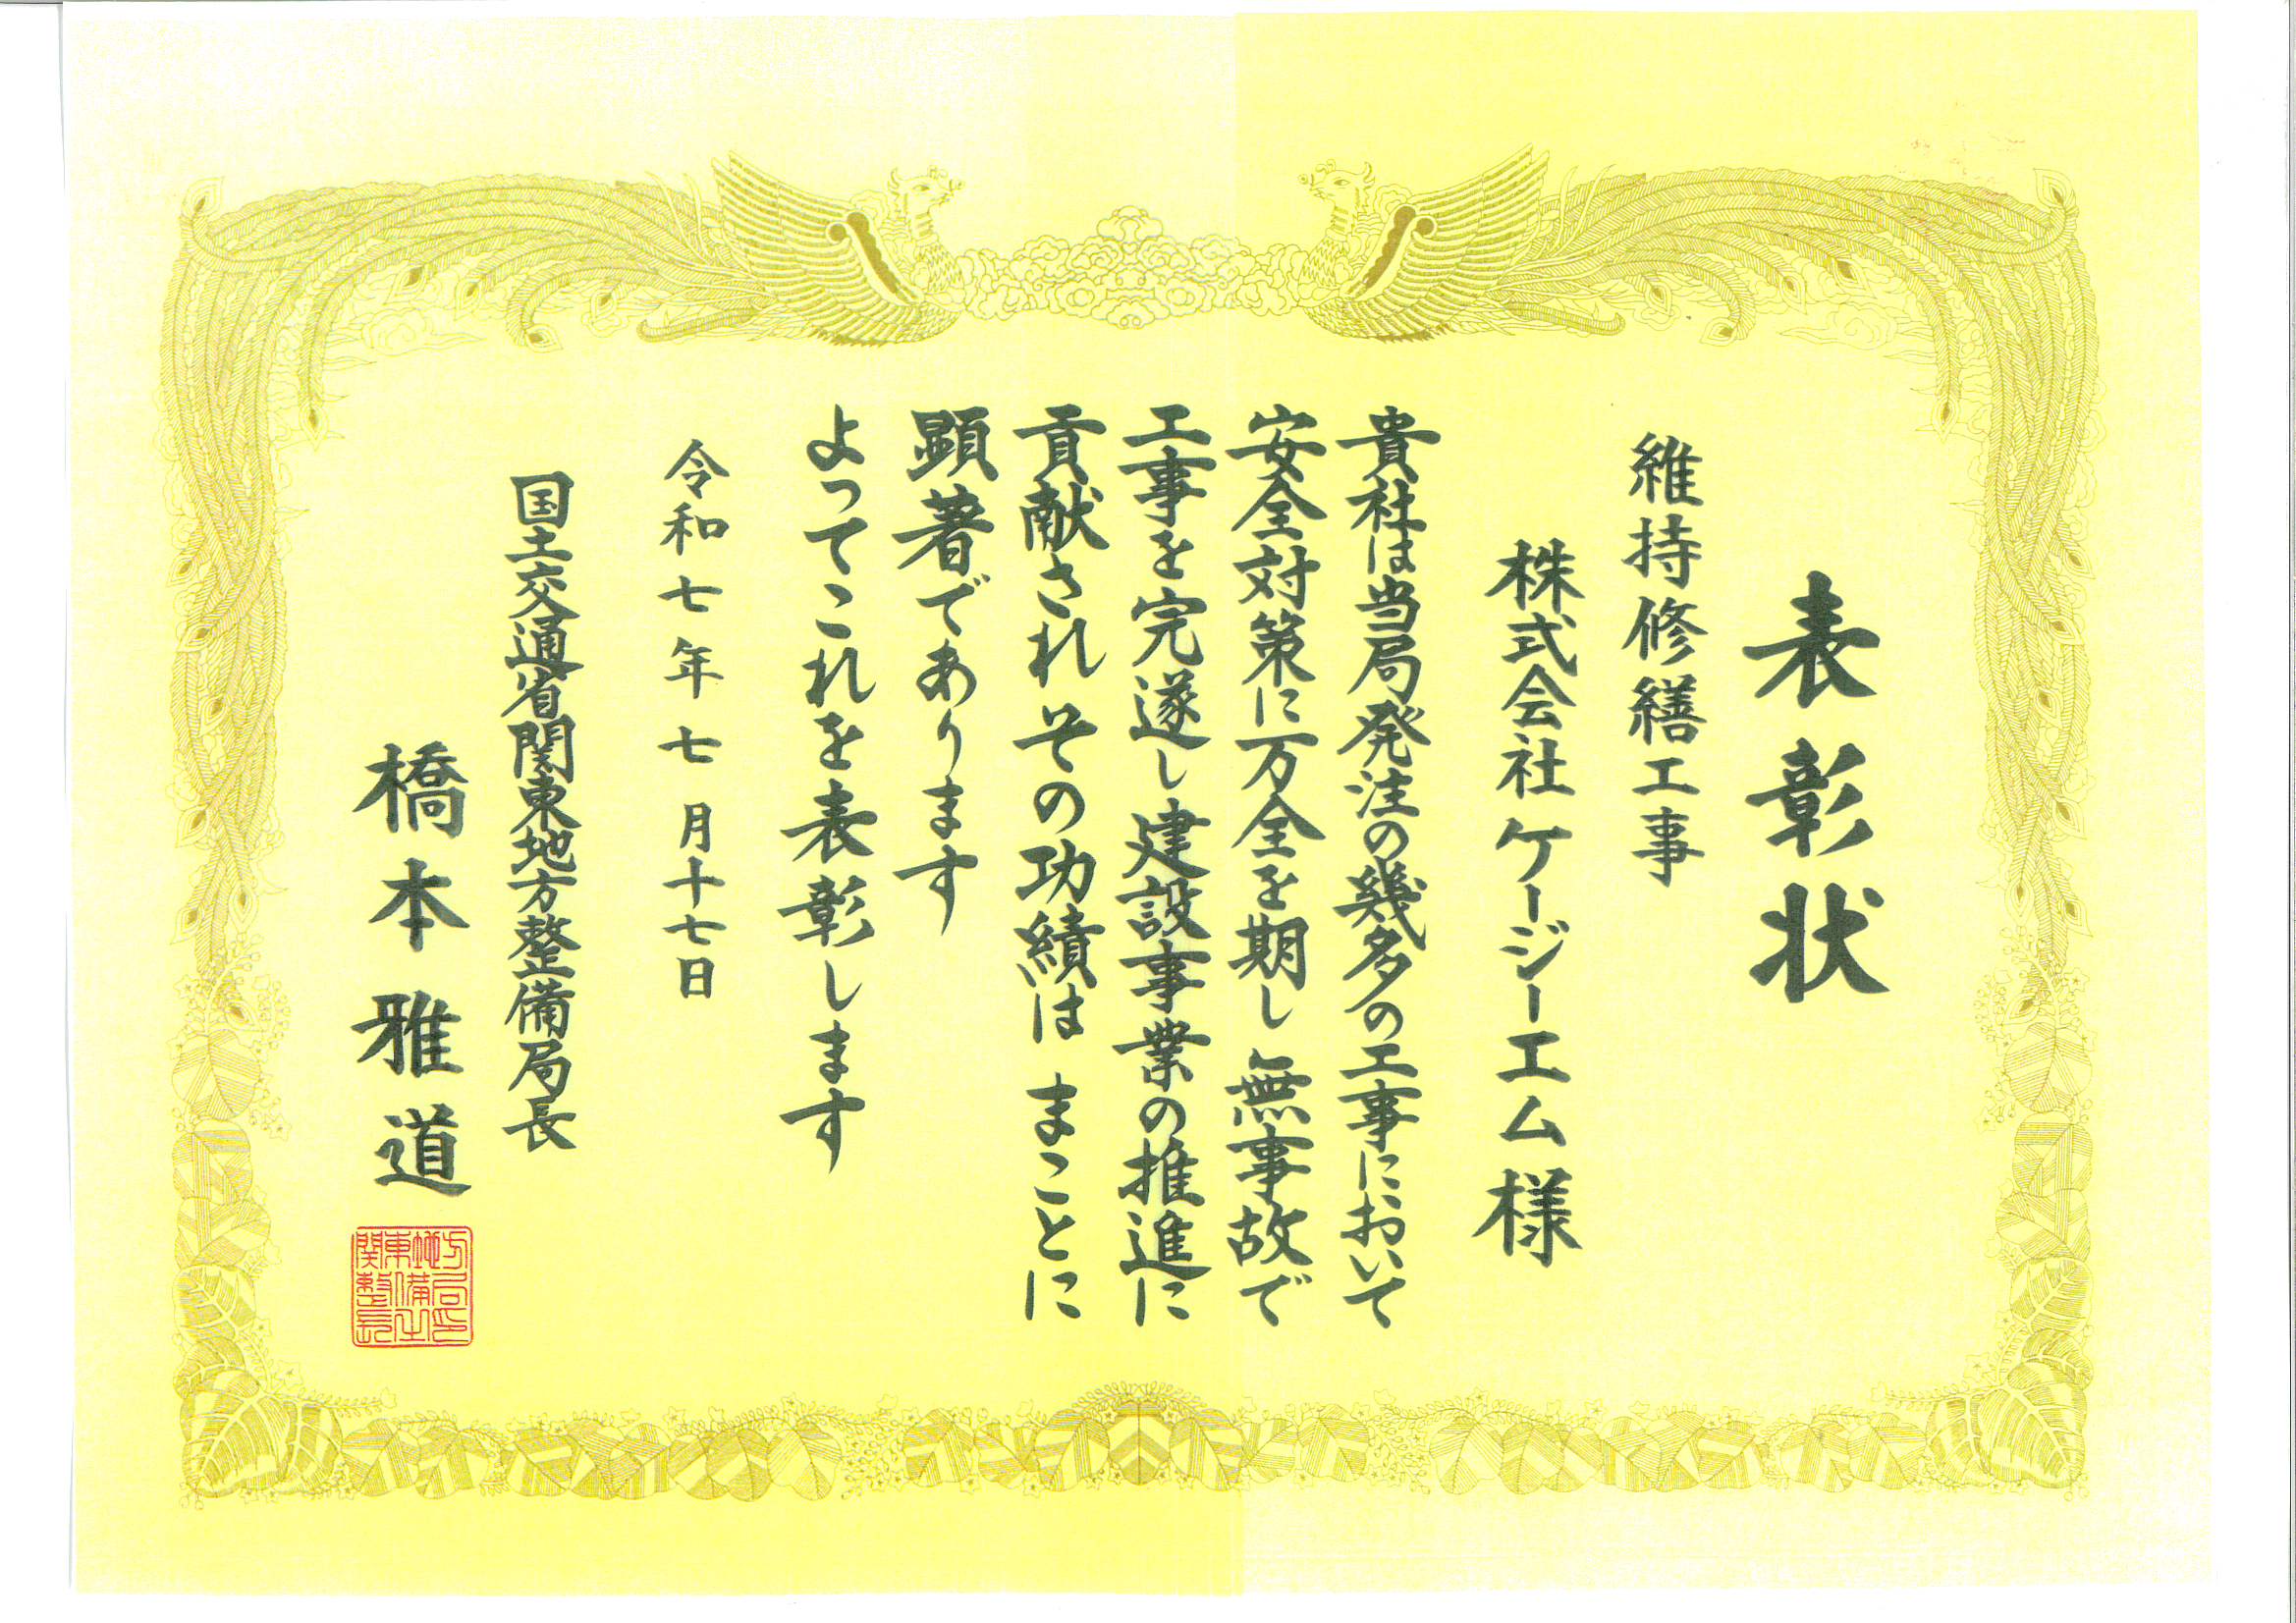 表彰状
維持修繕工事
株式会社ケージーエム様
貴社は当局発注の幾多の工事において
安全対策に万全を期し無事故で
工事を完遂し建設事業の推進に
貢献されその功績はまことに
顕著であります
よってこれを表彰します
令和七年七月十七日
国土交通省関東地方整備局長
橋本雅道